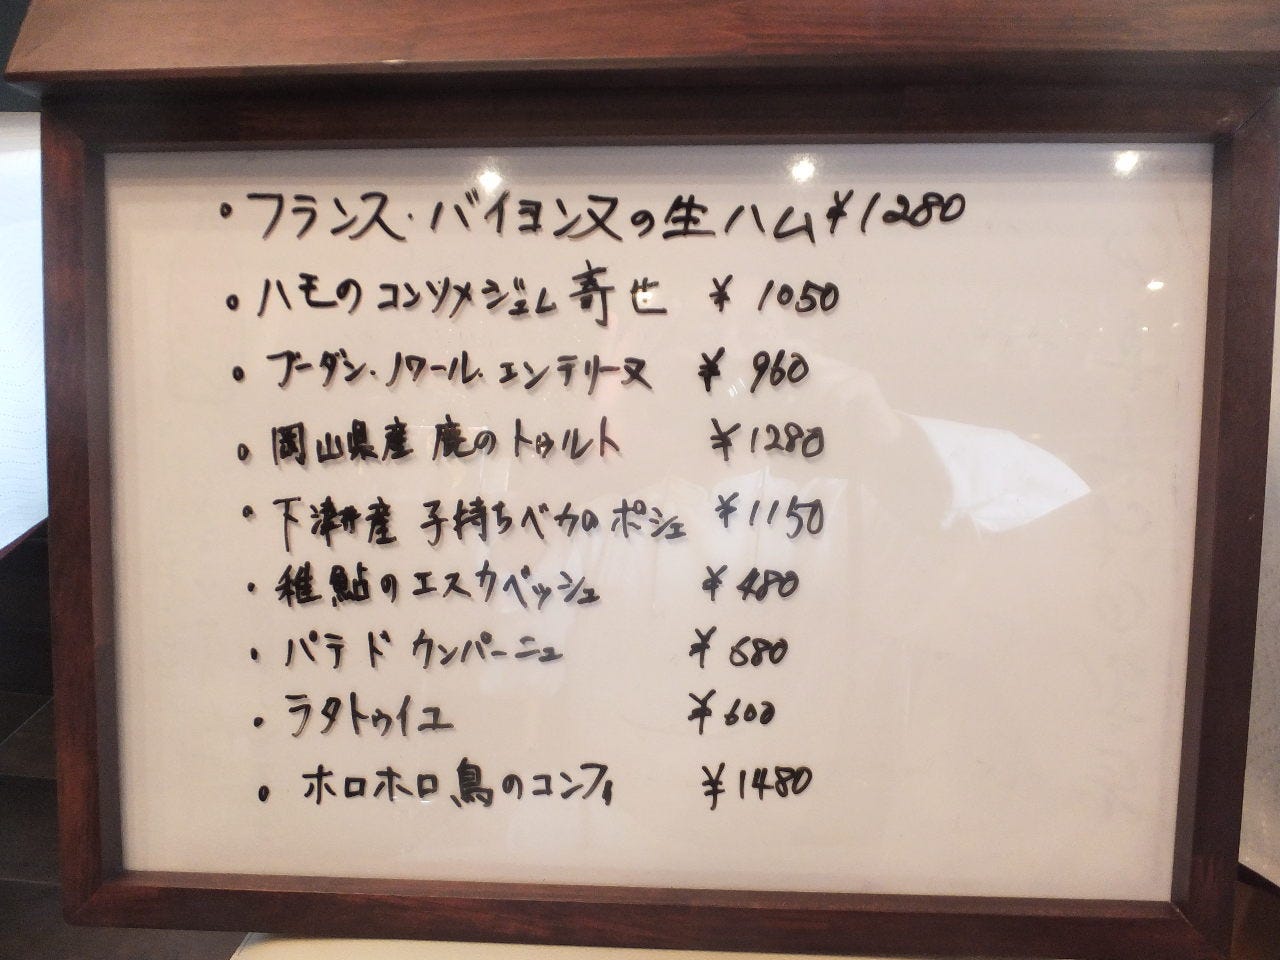 ・フランス・バイヨンヌの生ハム ¥1280
・ハモのコンソメジュレ寄せ ¥1050
・ブーダン・ノワール・エンテリーヌ ¥960
・岡山県産 鹿のトゥルト ¥1280
・下津井産 子持ちベカのポシェ ¥1150
・稚鮎のエスカベッシュ ¥480
・パテ ド カンパーニュ ¥680
・ラタトゥイユ ¥600
・ホロホロ鳥のコンフィ ¥1480